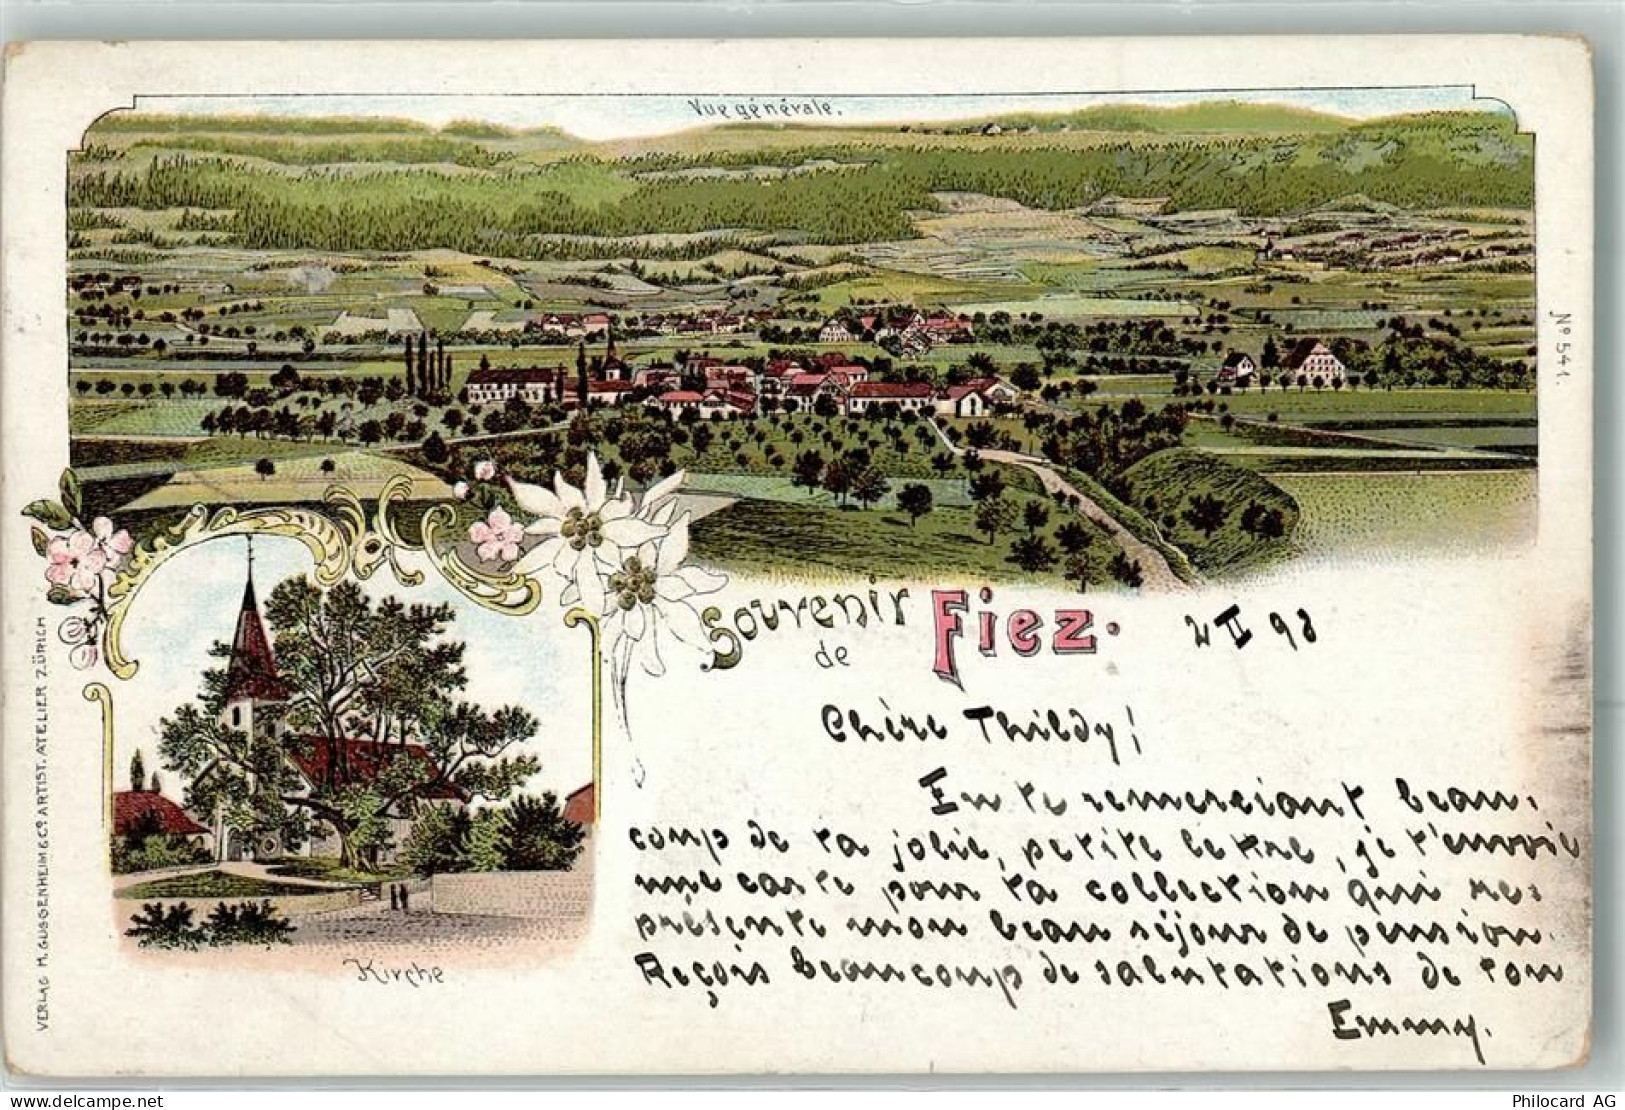 Vue générale.
Nº 541.
Souvenir
de
Fiez.
2 II 98
Chère Thildy!
En te remerciant beau-
coup de ta jolie, petite lettre, je t'envoie
une carte pour ta collection qui re-
présente mon beau séjour de pension.
Reçois beaucoup de salutations de ton
Emmy.
Kirche
VERLAG H. GUGGENHEIM & Cº. ARTIST. ATELIER ZÜRICH
www.delcampe.net
Philocard AG